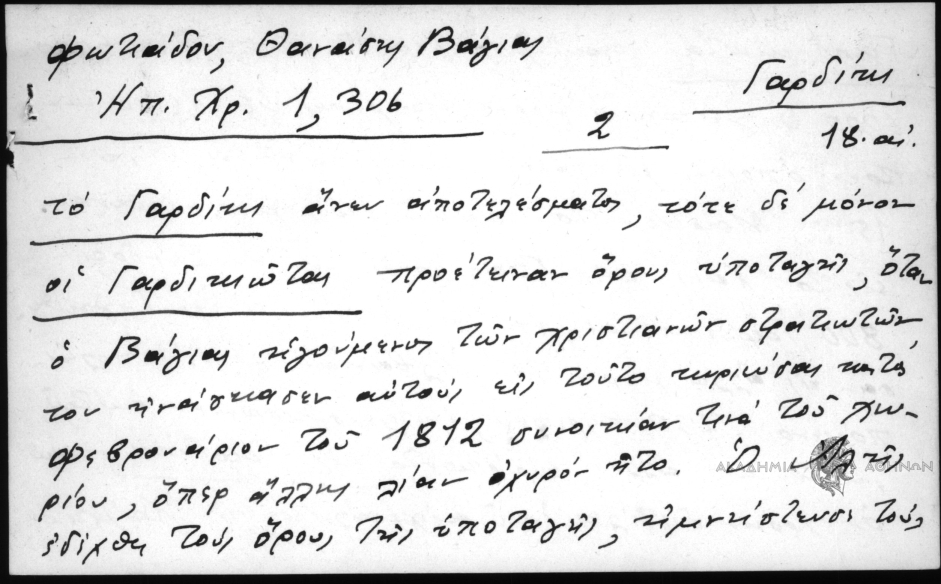 Φωτιάδου, Θανάσης Βάγιας
Γαρδίκι
Ἠπ. Χρ. 1, 306
2
18. αἰ.
τό Γαρδίκι ἄνευ ἀποτελέσματος, τότε δέ μόνον
οἱ Γαρδικιῶται προέτειναν ὅρους ὑποταγῆς, ὅταν
ὁ Βάγιας ἡγούμενος τῶν χριστιανῶν στρατιωτῶν
του ἠνάγκασεν αὐτούς εἰς τοῦτο κυριεύσας κατά
Φεβρουάριον τοῦ 1812 συνοικίαν τινά τοῦ χω-
ρίου, ὅπερ ἄλλως λίαν ὀχυρόν ἦτο. Ὁ Ἀλῆς
ΑΚΑΔΗΜΙΑ ΑΘΗΝΩΝ
ἐδέχθη τούς ὅρους τῆς ὑποταγῆς, τούς